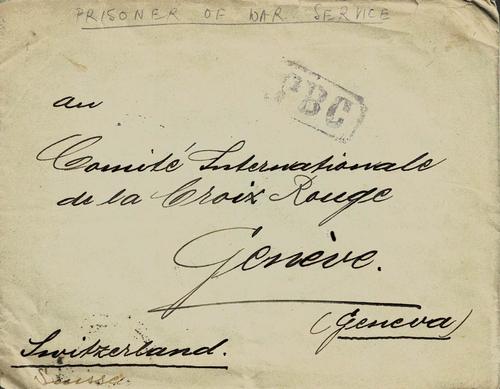 PRISONER OF WAR SERVICE
PBC
au
Comité Internationale
de la Croix Rouge
Genève.
(Geneva)
Switzerland.
Suisse.